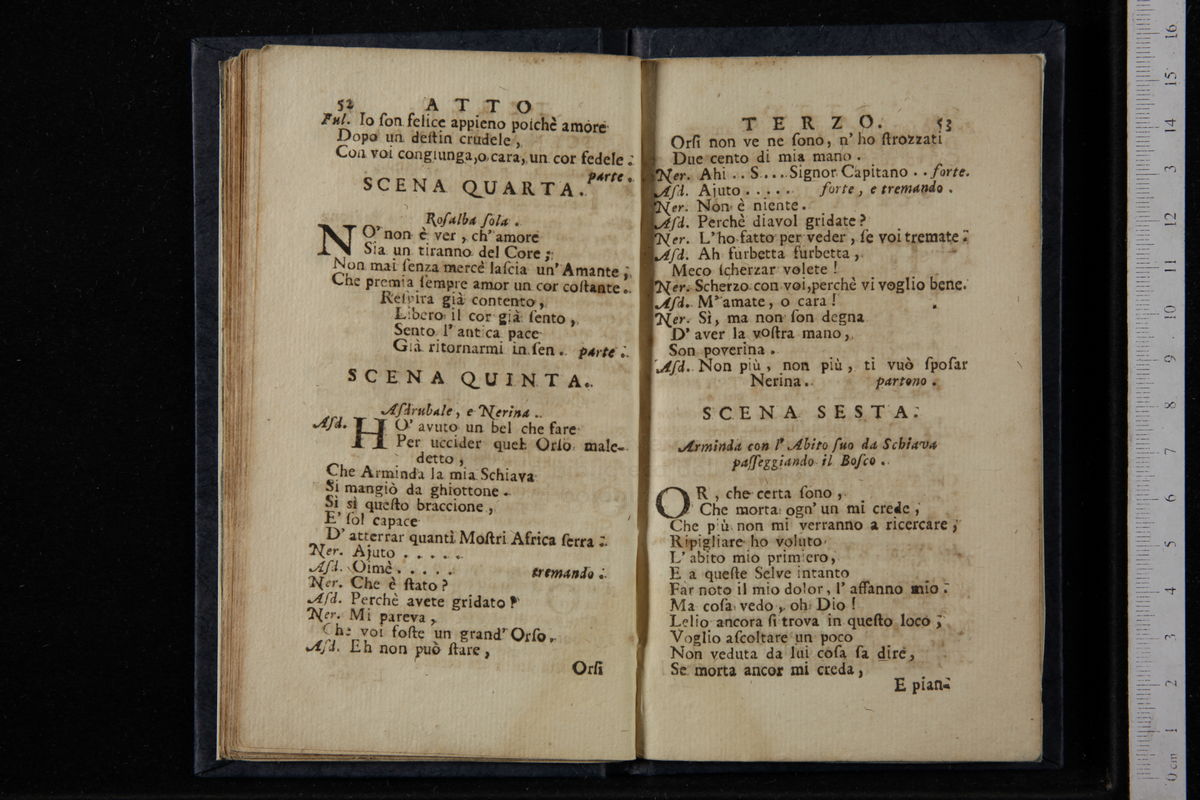 52 ATTO
Ful. Io ſon felice appieno poichè amore
Dopo un deſtin crudele,
Con voi congiunga, o cara, un cor fedele.
parte.
SCENA QUARTA.
Roſalba ſola.
NO' non è ver, ch' amore
Sia un tiranno del Core;
Non mai ſenza mercè laſcia un' Amante,
Che premia ſempre amor un cor coſtante.
Reſpira già contento,
Libero il cor già ſento,
Sento l' antica pace
Già ritornarmi in ſen. parte.
SCENA QUINTA.
Aſdrubale, e Nerina.
Aſd. HO' avuto un bel che fare
Per uccider quel Orſo male-
detto,
Che Arminda la mia Schiava
Si mangiò da ghiottone.
Sì sì queſto braccione,
E' ſol capace
D' atterrar quanti Moſtri Africa ſerra.
Ner. Ajuto . . . . .
Aſd. Oimè . . . . . tremando.
Ner. Che è ſtato?
Aſd. Perchè avete gridato?
Ner. Mi pareva,
Che voi foſte un grand' Orſo.
Aſd. Eh non può ſtare,
Orſi
TERZO. 53
Orſi non ve ne ſono, n' ho ſtrozzati
Due cento di mia mano.
Ner. Ahi . . S . . . Signor Capitano . . forte.
Aſd. Ajuto . . . . . forte, e tremando.
Ner. Non è niente.
Aſd. Perchè diavol gridate?
Ner. L'ho fatto per veder, ſe voi tremate.
Aſd. Ah furbetta furbetta,
Meco ſcherzar volete!
Ner. Scherzo con voi, perchè vi voglio bene.
Aſd. M' amate, o cara!
Ner. Sì, ma non ſon degna
D' aver la voſtra mano,
Son poverina.
Aſd. Non più, non più, ti vuò ſpoſar
Nerina. partono.
SCENA SESTA.
Arminda con l' Abito ſuo da Schiava
paſſeggiando il Boſco.
OR, che certa ſono,
Che morta ogn' un mi crede,
Che più non mi verranno a ricercare,
Ripigliare ho voluto
L' abito mio primiero,
E a queſte Selve intanto
Far noto il mio dolor, l' affanno mio.
Ma coſa vedo, oh Dio!
Lelio ancora ſi trova in queſto loco;
Voglio aſcoltare un poco
Non veduta da lui coſa ſa dire,
Se morta ancor mi creda,
E pian-